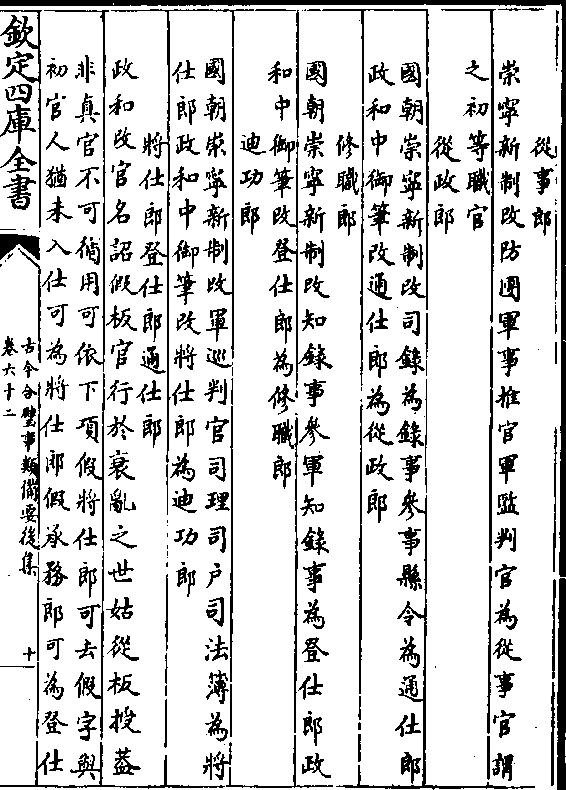 從事郎
崇寧新制改防團軍事推官軍監判官為從事官謂
之初等職官
從政郎
國朝崇寧新制改司錄為錄事參事縣令為通仕郎
政和中御筆改通仕郎為從政郎
修職郎
國朝崇寧新制改知錄事參軍知錄事為登仕郎政
和中御筆改登仕郎為修職郎
迪功郎
國朝崇寧新制改軍巡判官司理司戶司法簿為將
仕郎政和中御筆改將仕郎為迪功郎
將仕郎登仕郎通仕郎
政和改官名詔假板官行於衰亂之世姑從板授蓋
非真官不可循用可依下項假將仕郎可去假字與
初官人猶未入仕可為將仕郎假承務郎可為登仕
欽定四庫全書
古今合璧事類備要後集
卷六十二
十